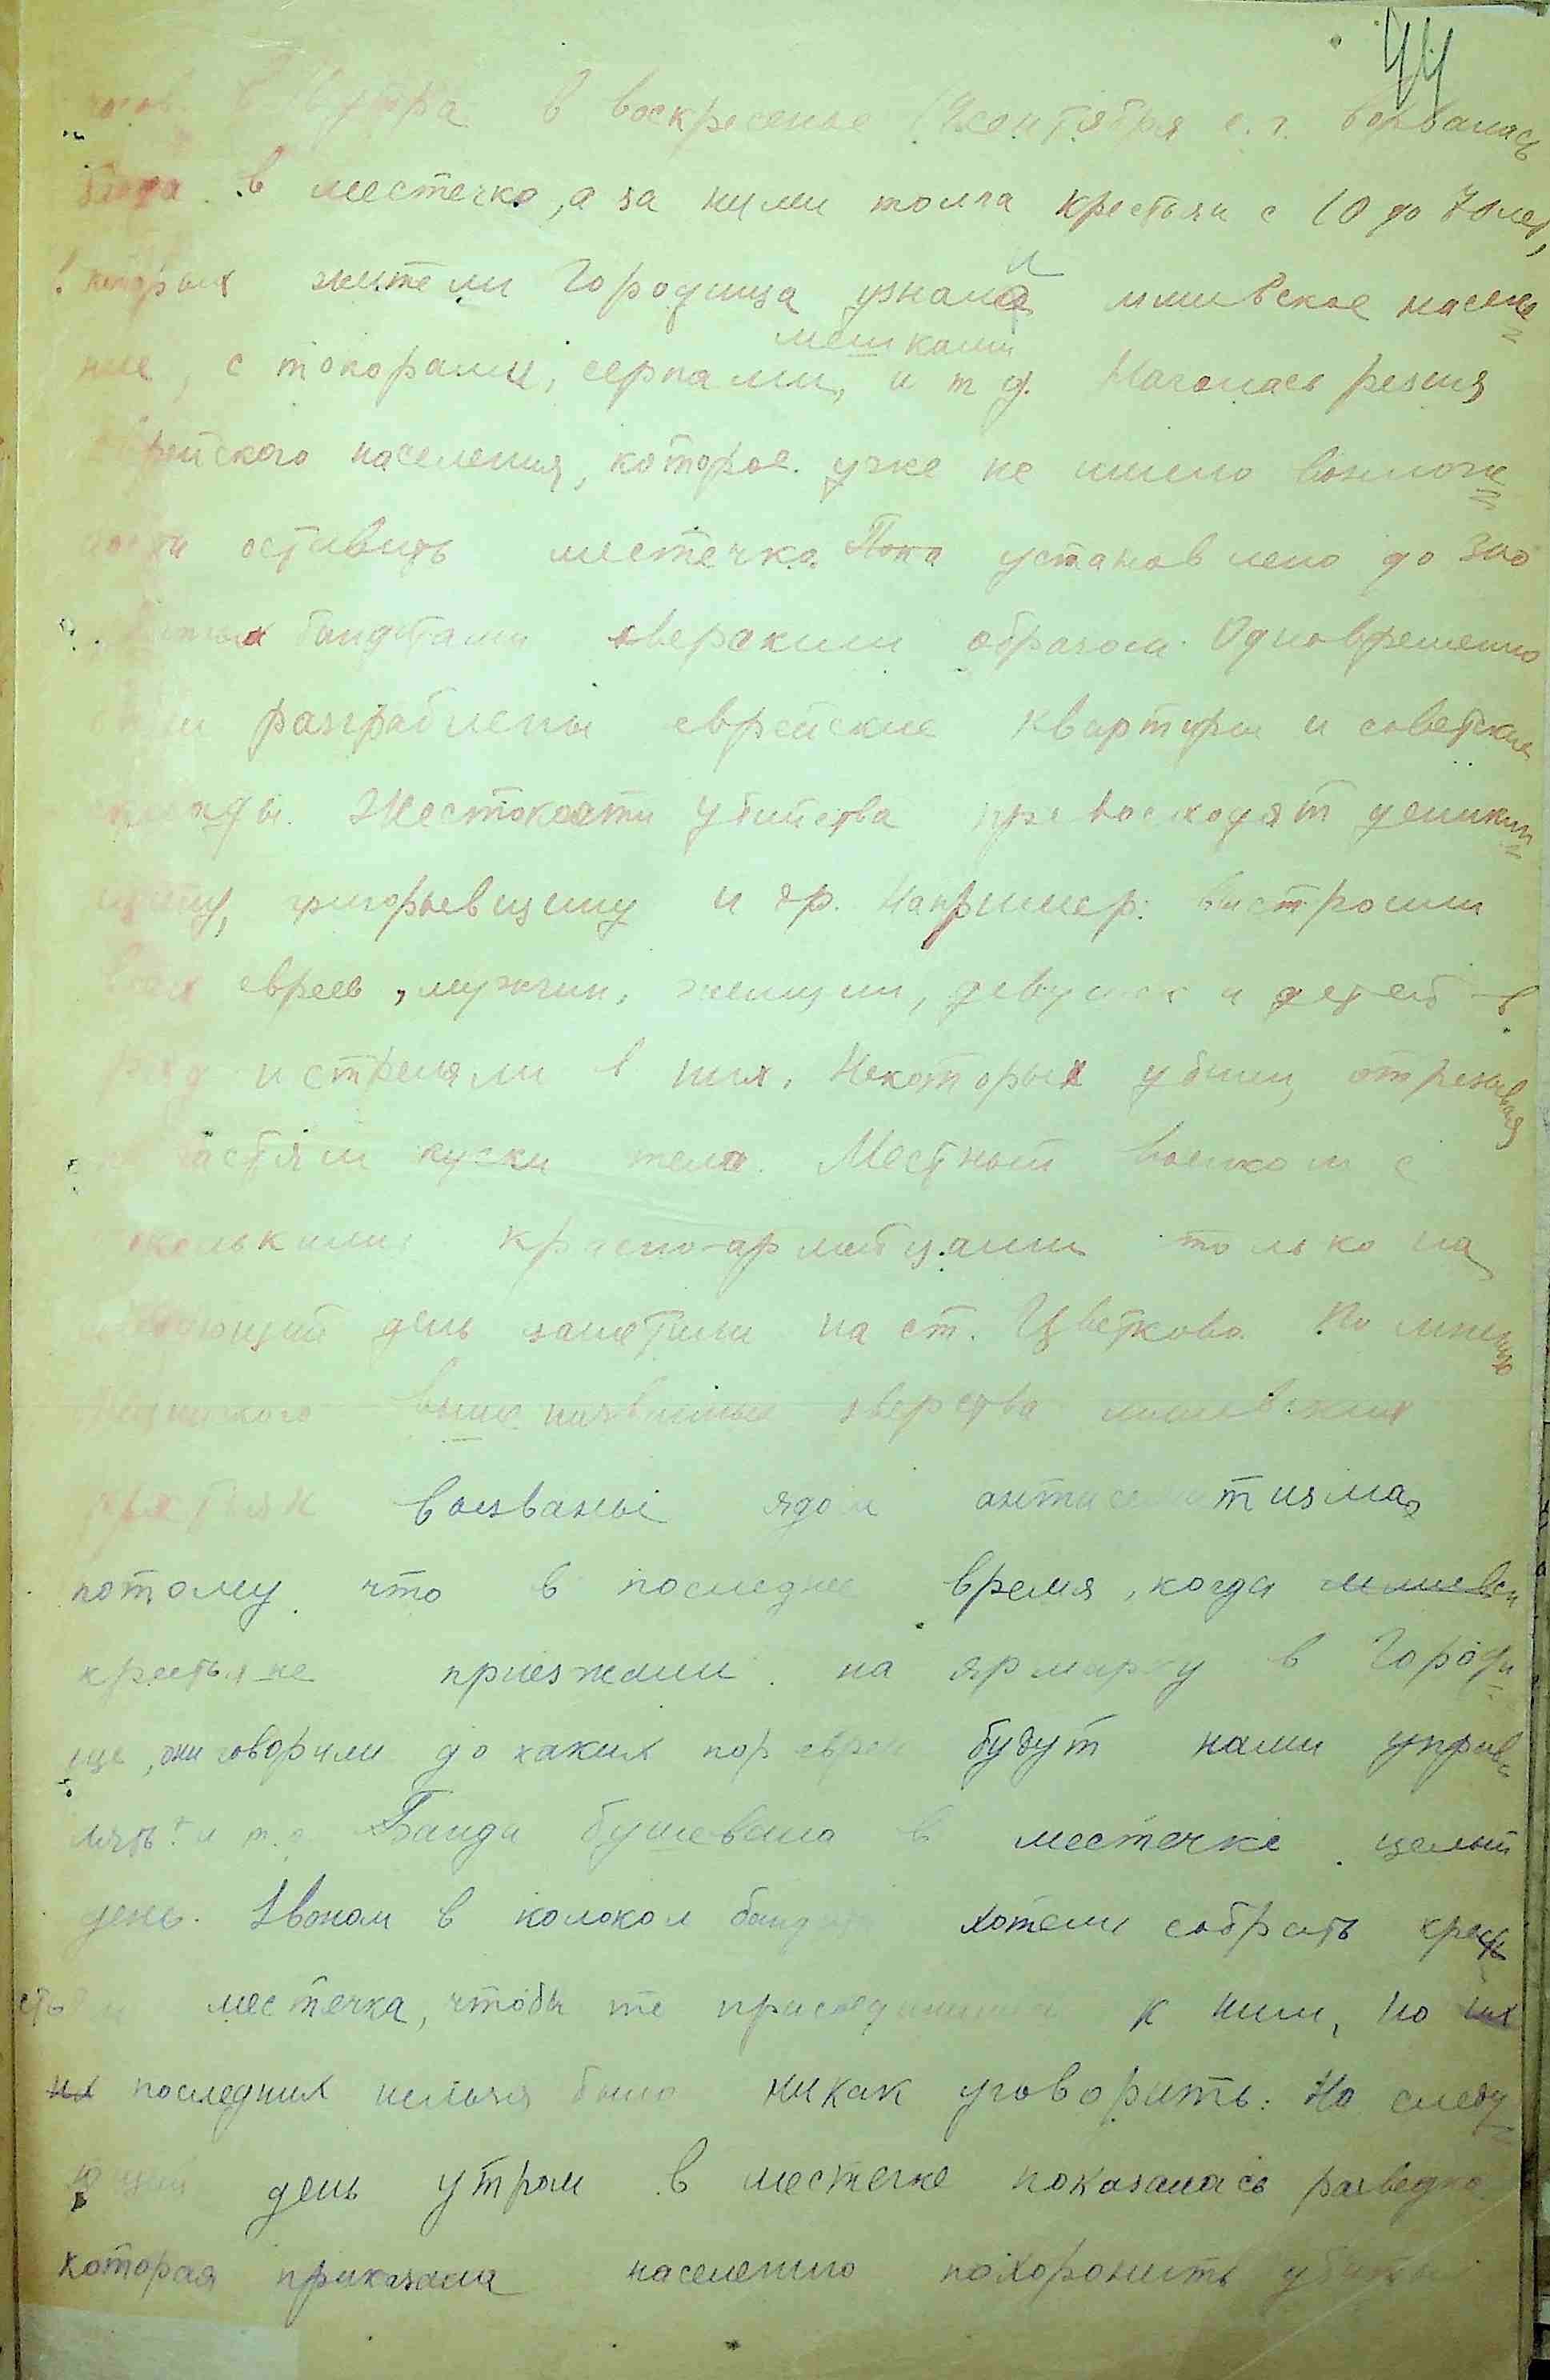 44
утра в воскресенье сентября с. г. ворвалась
в местечко, а за ними толпа крестьян с 10 до 70 лет,
которых жители Городища узнали млиевское населе
мешками
ние, с топорами, серпами, и т д. Началась резня
еврейского населения, которое уже не имело возмож
ности оставить местечко. Пока установлено до 300
бандитами зверским образом. Одновременно
были разграблены еврейские квартиры и советские
Жестокости убийства превосходят деникин
щину, григорьевщину и др. Например: выстроили
всех евреев, мужчин, женщин, девушек и детей в
ряд и стреляли в них. Некоторых убили, отрезывая
по частям куски тела. Местный военком с
несколькими красно-армейцами только на
следующий день заметили на ст. Цветково. По мнению
выше названные зверства млиевских
крестьян вызваны ядом антисемитизма,
потому что в последнее время, когда млиевск
крестьяне приезжали на ярмарку в Городи
ще, они говорили до каких пор евреи будут нами управ
лять? и т. д. Банда бушевала в местечке целый
день. Звоном в колокол бандиты хотели собрать кре
стьян местечка, чтобы те присоединились к ним, но их
их последних нельзя было никак уговорить. На следу
ющий день утром в местечке показалась разведка
которая приказала населению похоронить убитых